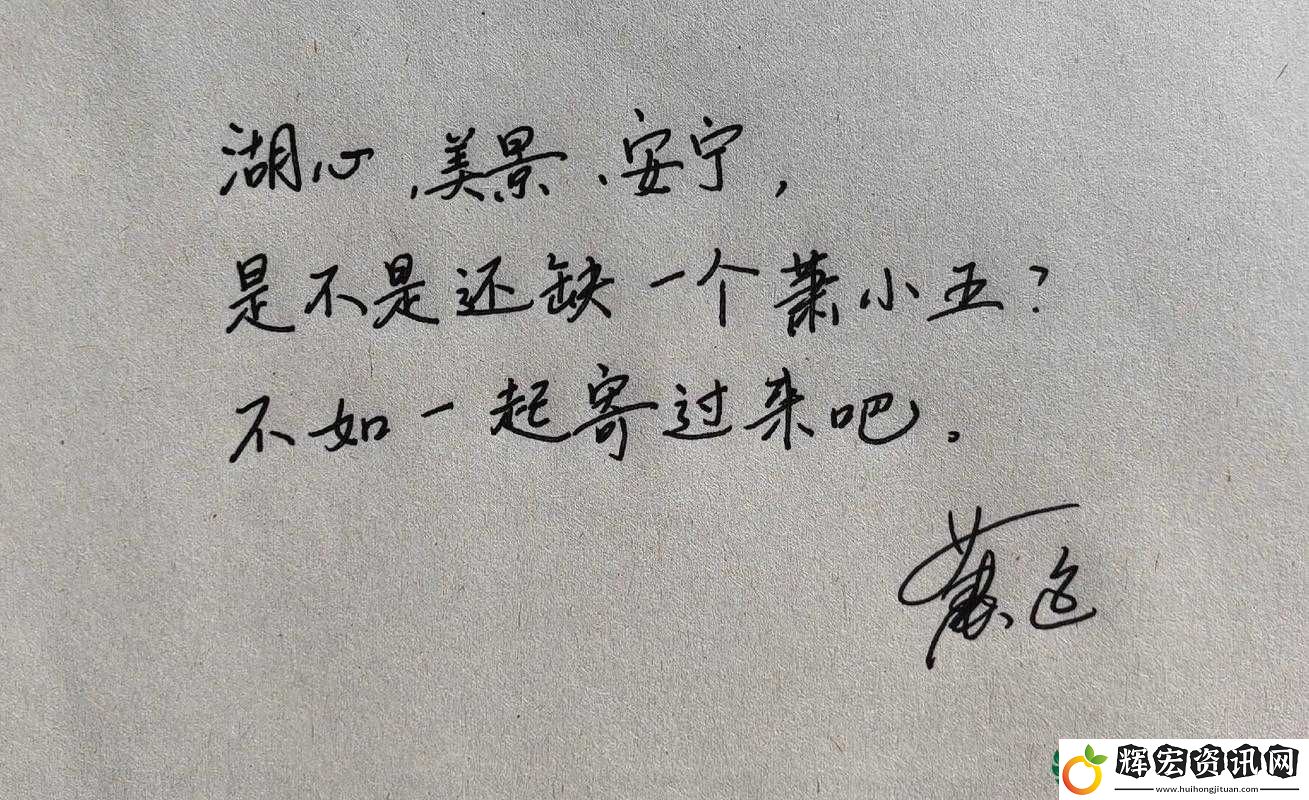 湖心、美景、安宁，
是不是还缺一个萧小五？
不如一起寄过来吧。
萧逸
辉宏资讯网
www.huihongjituan.com